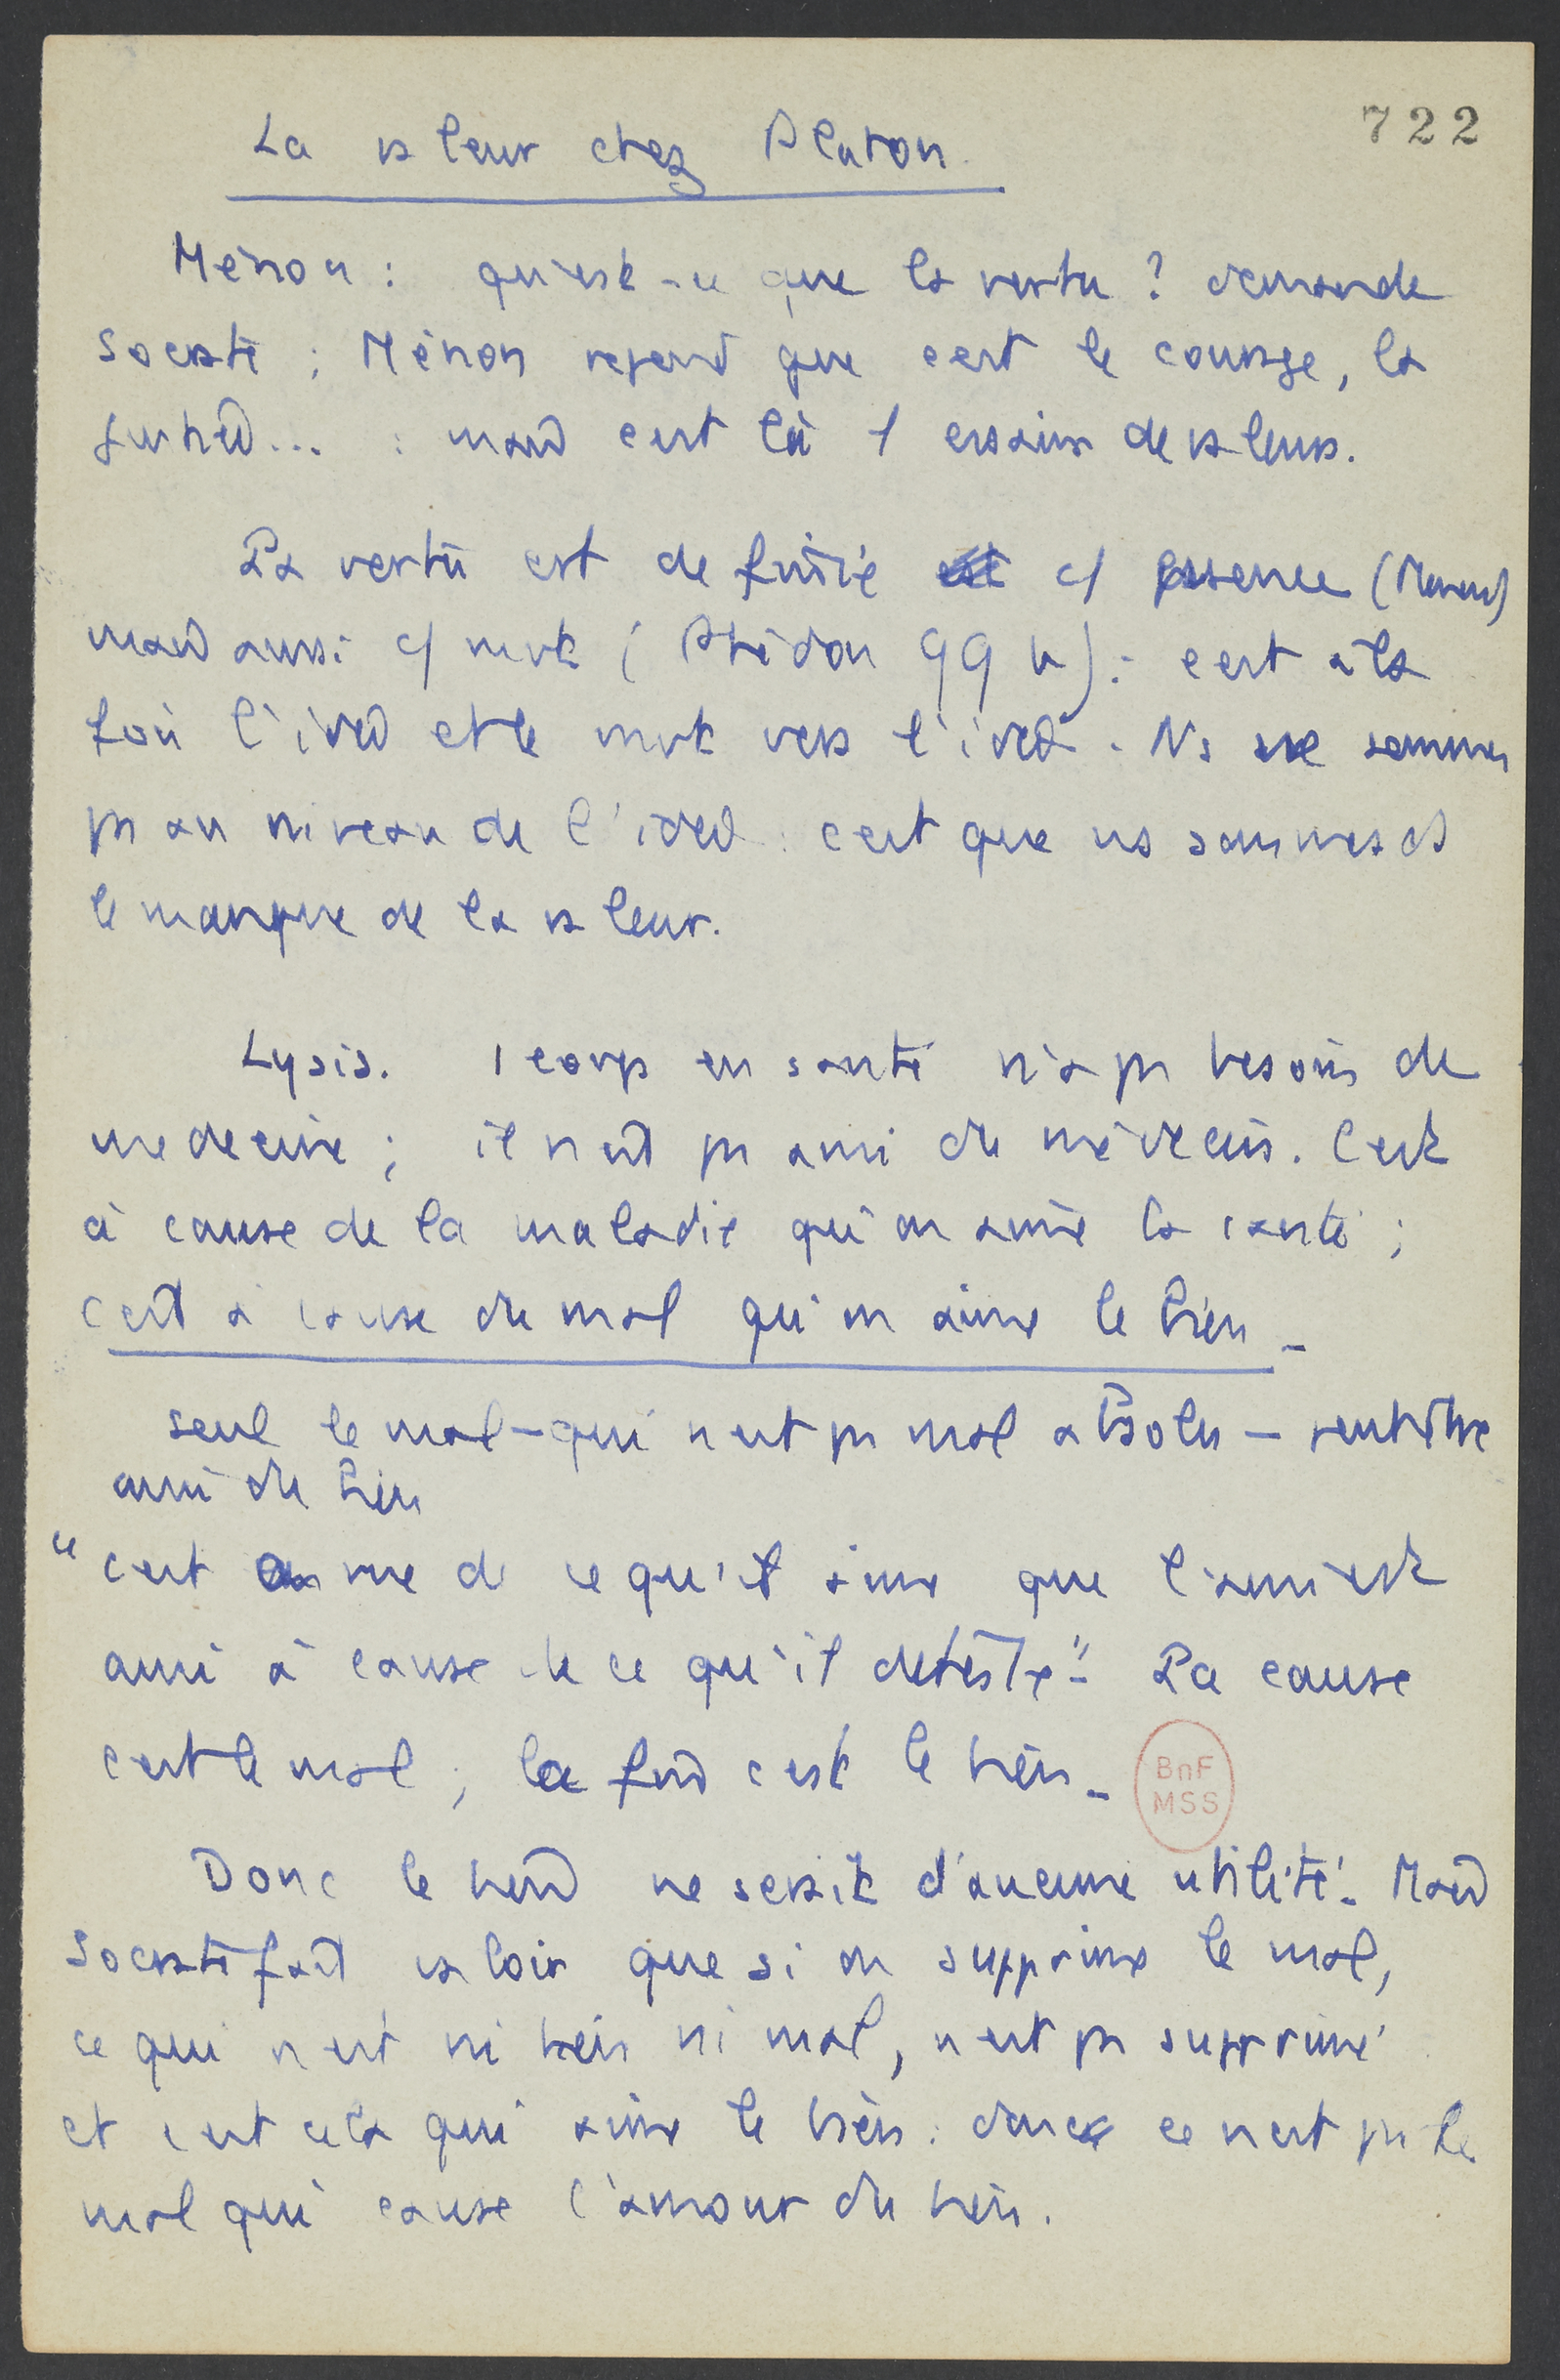 722
La valeur chez Platon.
Ménon : qu'est-ce que la vertu ? demande
Socrate ; Ménon répond que c'est le courage, la
justice... : mais c'est là 1 essaim de valeurs.
La vertu est définie c/ essence (Ménon)
mais aussi c/ but (Phédon 99 b) : c'est à la
fois l'idéal et le but vers l'idéal. Ns ne sommes
pas au niveau de l'idéal : c'est que ns sommes ds
le manque de la valeur.
Lysis. 1 corps en santé n'a pas besoin de
médecine ; il n'est pas ami du médecin. C'est
à cause de la maladie qu'on aime la santé ;
c'est à cause du mal qu'on aime le bien.
seul le mal – qui n'est pas mal absolu – peut être
ami du bien
"c'est en vue de ce qu'il aime que l'ami est
ami à cause de ce qu'il déteste". La cause
c'est le mal ; la fin c'est le bien.
Donc le bien ne serait d'aucune utilité. Mais
Socrate fait valoir que si on supprime le mal,
ce qui n'est ni bien ni mal, n'est pas supprimé
et c'est cela qui aime le bien : donc ce n'est pas le
mal qui cause l'amour du bien.
BnF
MSS